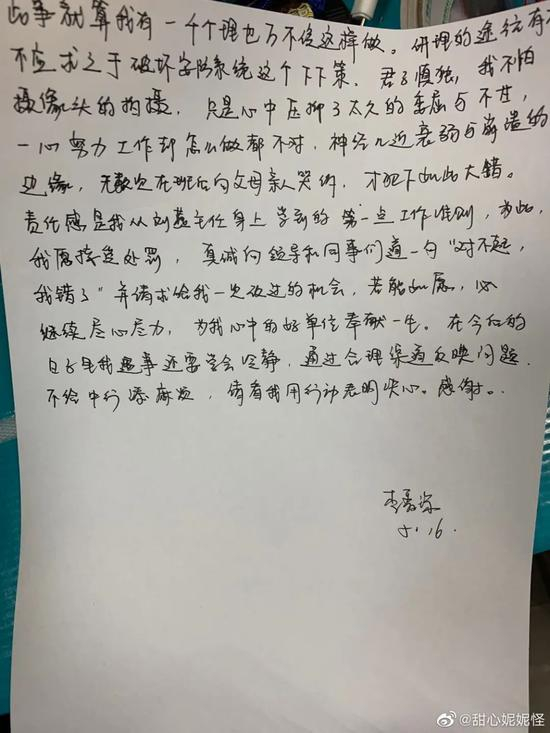 此事就算我有一千个理也万不该这样做。办理的途径有
不应求之于破坏安防系统这个下下策。君子慎独，我不怕
摄像头的拍摄，只是心中压抑了太久的委屈与不甘，
一心努力工作却怎么做都不对，神经几近衰弱与崩溃的
边缘，无数次在班后向父母亲人哭诉，才犯下如此大错。
责任感是我从刘蕊主任身上学到的第一点工作准则，为此，
我愿接受处罚，真诚向领导和同事们道一句"对不起，
我错了"并请求给我一次改过的机会，若能如愿，必
继续尽心尽力，为我心中的好单位奉献一生。在今后的
日子里我遇事还要学会冷静，通过合理渠道反映问题
不给中行添麻烦，请看我用行动表明决心。感谢。
李
5.16.
@甜心妮妮怪